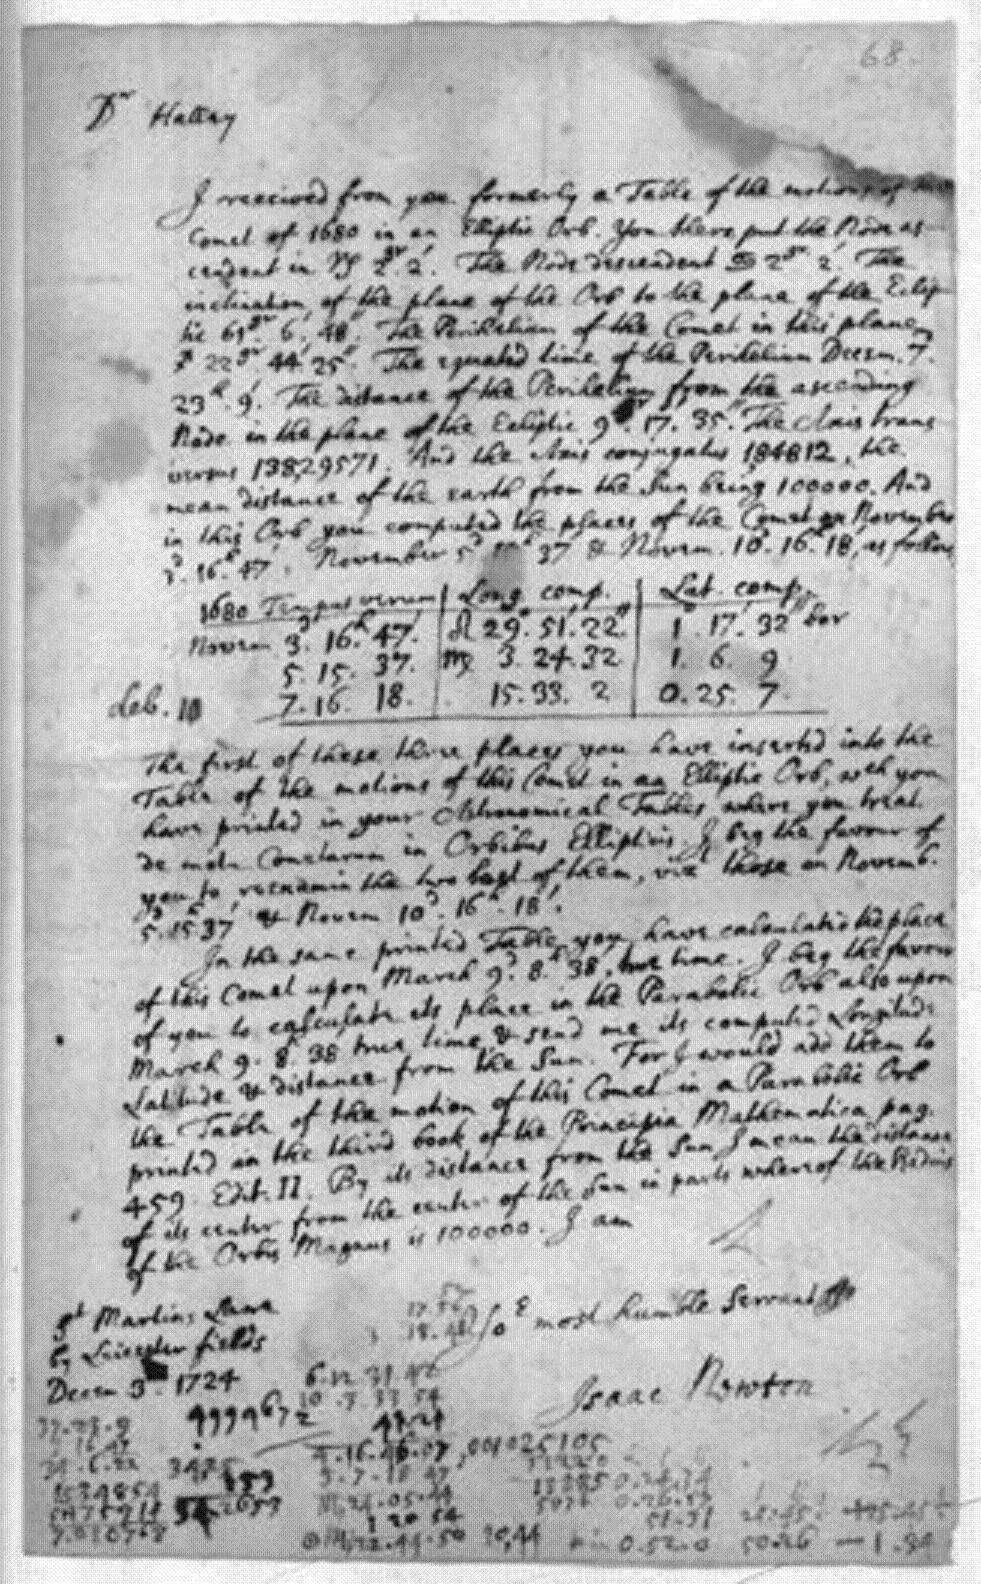 68.
Dr Halley
I received from you formerly a Table of the motions of the
Comet of 1680 in an Elliptic Orb. You there put the Node as-
cendent in ♑ 2gr. 2′. The Node descendent ♋ 2gr 2′. The
inclination of the plane of the Orb to the plane of the Eclip-
tic 61gr. 6′. 48″. The Perihelium of the Comet in this plane
♐ 22gr. 44′. 25″. The equated time of the Perihelium Decem. 7.
23h. 9′. The distance of the Perihelium from the ascending
Node in the plane of the Ecliptic 9gr. 17′. 35″. The Axis trans-
versus 13829571. And the Axis conjugatus 184812, the
mean distance of the earth from the Sun being 100000. And
in this Orb you computed the places of the Comet on November
3d. 16h. 47′. November 5d 37′ & Novem. 10d. 16h. 18′, as follow
1680 Tempus verum | Long. comp. | Lat. comp.
Novem 3. 16h. 47′. | ♌ 29°. 51′. 22″ | 1°. 17′. 32″ bor
5. 15. 37. | ♍ 3. 24. 32 | 1. 6. 9
deb. 10 7. 16. 18. | 15. 33. 2 | 0. 25. 7
The first of these three places you have inserted into the
Table of the motions of this Comet in an Elliptic Orb, wch you
have printed in your Astronomical Tables where you treat
de motu Cometarum in Orbibus Ellipticis. I beg the favour of
you to reexamin the two last of them, viz those on Novemb.
5d. 15h 37′ & Novem 10d. 16h. 18′.
In the same printed Table you have calculated the place
of this Comet upon March 9d. 8h. 38′, true time. I beg the favour
of you to calculate its place in the Parabolic Orb also upon
March 9. 8h 38′ true time, & send me its computed Longitude
Latitude & distance from the Sun. For I would add them to
the Table of the motion of this Comet in a Parabolic Orb
printed in the third book of the Principia Mathematica pag.
459. Edit. II. By its distance from the Sun I mean the distance
of its center from the center of the Sun in parts whereof the Radius
of the Orbis Magnus is 100000. I am
St Martins Lane
by Leicester fields
Decem 3d. 1724
most humble Servant
Isaac Newton